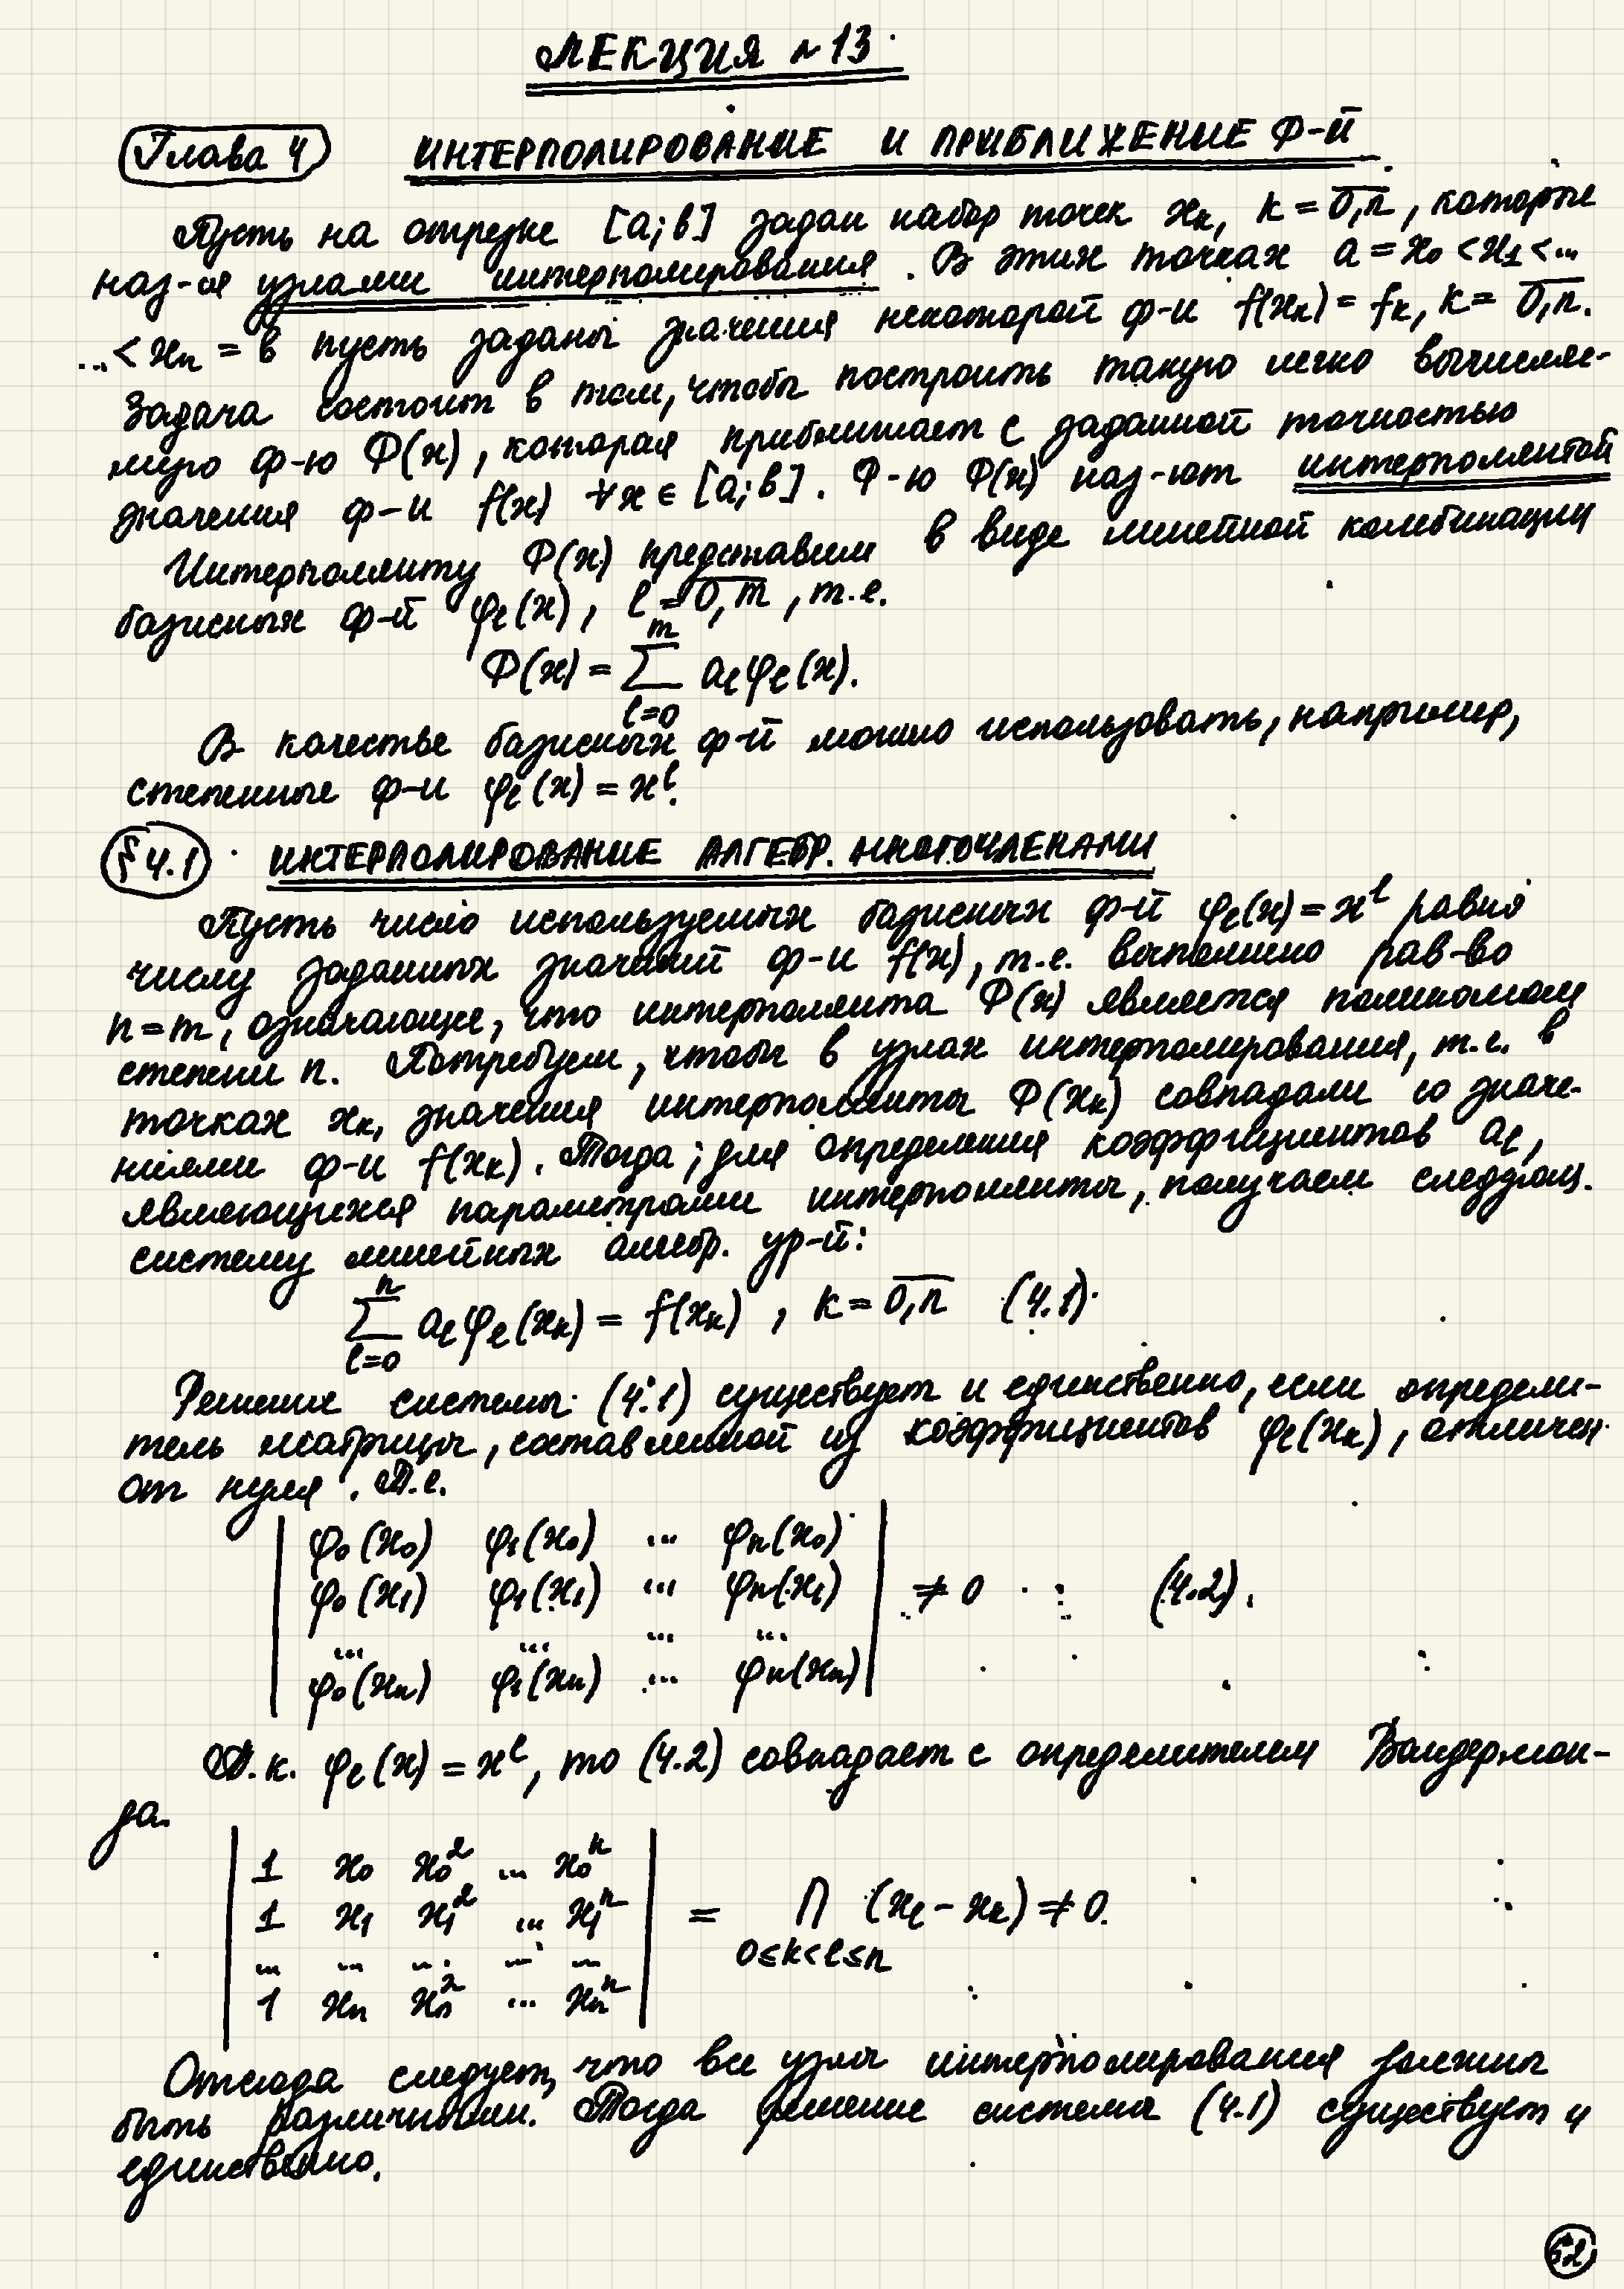 ЛЕКЦИЯ N 13
Глава 4 ИНТЕРПОЛИРОВАНИЕ И ПРИБЛИЖЕНИЕ Ф-Й
Пусть на отрезке [a;b] задан набор точек xₖ, k = 0,n̅, которые
наз-ся узлами интерполирования. В этих точках a = x₀ < x₁ < ...
... < xₙ = b пусть заданы значения некоторой ф-и f(xₖ) = fₖ, k = 0,n̅.
Задача состоит в том, чтобы построить такую легко вычисляе-
мую ф-ю Φ(x), которая приближает с заданной точностью
значения ф-и f(x) ∀x ∈ [a;b]. Ф-ю Φ(x) наз-ют интерполянтой
Интерполянту Φ(x) представим в виде линейной комбинации
базисных ф-й φₗ(x), l = 0,m̅, т.е.
Φ(x) = ∑_{l=0}^{m} aₗφₗ(x).
В качестве базисных ф-й можно использовать, например,
степенные ф-и φₗ(x) = xˡ.
§ 4.1 ИНТЕРПОЛИРОВАНИЕ АЛГЕБР. МНОГОЧЛЕНАМИ
Пусть число используемых базисных ф-й φₗ(x) = xˡ равно
числу заданных значений ф-и f(x), т.е. выполнено рав-во
n = m, означающее, что интерполянта Φ(x) является полиномом
степени n. Потребуем, чтобы в узлах интерполирования, т.е. в
точках xₖ, значения интерполянты Φ(xₖ) совпадали со значе-
ниями ф-и f(xₖ). Тогда, для определения коэффициентов aₗ,
являющихся параметрами интерполянты, получаем следующ.
систему линейных алгебр. ур-й:
∑_{l=0}^{n} aₗφₗ(xₖ) = f(xₖ), k = 0,n̅ (4.1)
Решение системы (4.1) существует и единственно, если определи-
тель матрицы, составленной из коэффициентов φₗ(xₖ), отличен
от нуля. Т.е.
| φ₀(x₀) φ₁(x₀) ... φₙ(x₀) |
| φ₀(x₁) φ₁(x₁) ... φₙ(x₁) | ≠ 0 (4.2).
| ... ... ... ... |
| φ₀(xₙ) φ₁(xₙ) ... φₙ(xₙ) |
Т.к. φₗ(x) = xˡ, то (4.2) совпадает с определителем Вандермон-
да.
| 1 x₀ x₀² ... x₀ⁿ |
| 1 x₁ x₁² ... x₁ⁿ | = ∏_{0≤k<l≤n} (xₗ - xₖ) ≠ 0.
| ... ... ... ... ... |
| 1 xₙ xₙ² ... xₙⁿ |
Отсюда следует, что все узлы интерполирования должны
быть различными. Тогда решение системы (4.1) существует и
единственно.
62